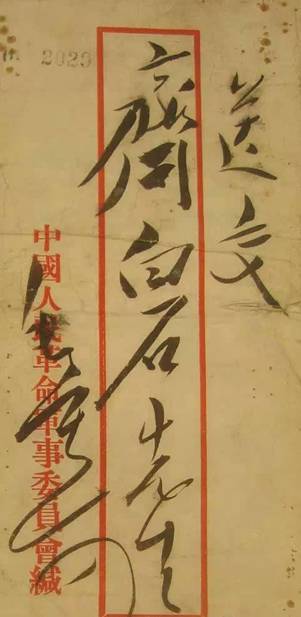 2029
送交
齊白石先生
中國人民革命軍事委員會緘